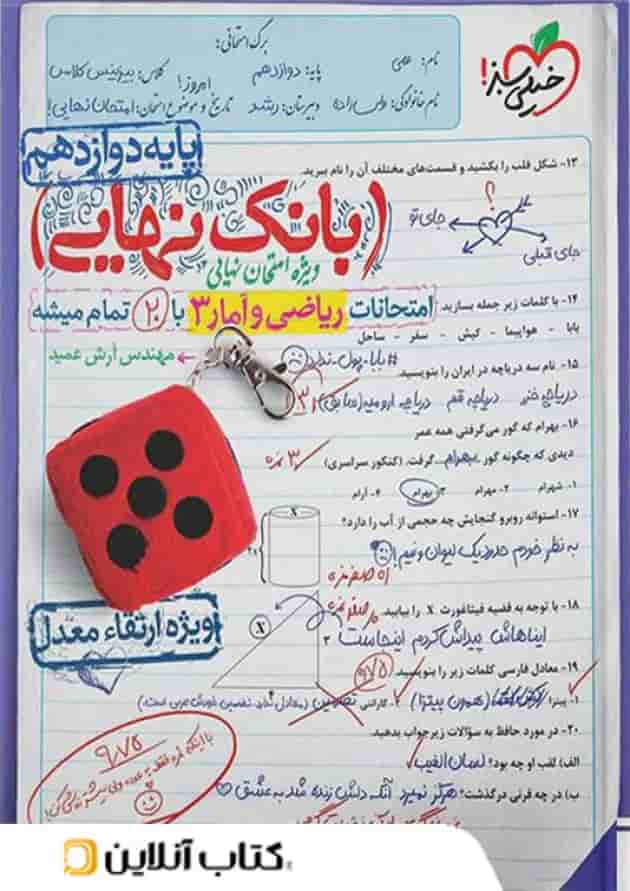 خیلی سبز!
برگ امتحانی:
نام:
پایه: دوازدهم
کلاس: بیزینس کلاس
امروز!
نام خانوادگی:
دبیرستان: رشد
تاریخ و موضوع امتحان: امتحان نهایی!
پایه دوازدهم
۱۳- شکل قلب را بکشید و قسمت‌های مختلف آن را نام ببرید.
(بانک نهایی)
؟
جای تو
جای قبلی
ویژه امتحان نهایی
امتحانات ریاضی و آمار ۳ با ۲۰ تمام میشه
۱۴- با کلمات زیر جمله بسازید.
بابا - هواپیما - کیش - سفر - ساحل
#بابا-پول-ندارد
مهندس آرش عمید
۱۵- نام سه دریاچه در ایران را بنویسید.
دریاچه خزر دریاچه قم دریاچه ارومیه (سابق)
۱۶- بهرام که گور می‌گرفتی همه عمر
دیدی که چگونه گور بهرام گرفت. (کنکور سراسری)
۳ نمره
۱- شهرام ۲- مهرام ۳- بهرام ۴- آرام
۱۷- استوانه روبرو گنجایش چه حجمی از آب را دارد؟
X
به نظر خودم حدود یک لیوان و نیم!
۱۸- با توجه به قضیه فیثاغورث X را بیابید.
صفر نمره
X
ایناهاش پیداش کردم اینجاست
۳
۴
ویژه ارتقاء معدل
۱۹- معادل فارسی کلمات زیر را بنویسید.
۹/۷۵
۱- پیتزا (همون پیتزا) ۲- گارانتی تضمین
۲۰- در مورد حافظ به سؤالات زیر جواب بدهید.
الف) لقب او چه بود؟ لسان الغیب
ب) در چه قرنی درگذشت؟ هرگز نمیرد آنکه دلش زنده شد به عشق
۹/۷۵
کتاب آنلاین